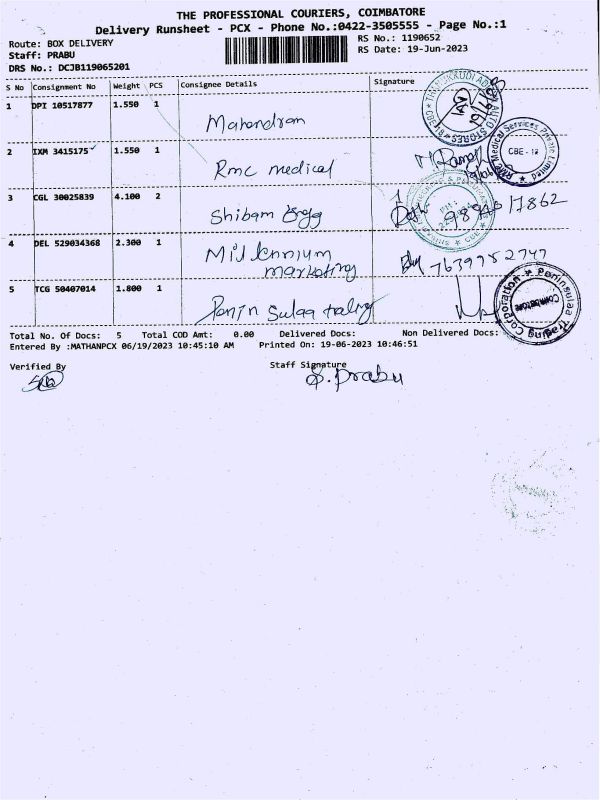 THE PROFESSIONAL COURIERS, COIMBATORE
Delivery Runsheet - PCX - Phone No.:0422-3505555 - Page No.:1
Route: BOX DELIVERY
RS No.: 1190652
Staff: PRABU
RS Date: 19-Jun-2023
DRS No.: DCJB119065201
S No Consignment No Weight PCS Consignee Details Signature
1 DPI 10517877 1.550 1
Mahendram
2 IXM 3415175 1.550 1
Rmc medical
CBE - 18
RMC Medical Services Private Limited
3 CGL 30025839 4.100 2
Shibam
17862
4 DEL 529034368 2.300 1
Millennium
marketing
7639952747
5 TCG 50407014 1.800 1
Penin Sulaa trading
Peninsulaa Trading Corporation
Coimbatore
Total No. Of Docs: 5 Total COD Amt: 0.00 Delivered Docs: Non Delivered Docs:
Entered By :MATHANPCX 06/19/2023 10:45:10 AM Printed On: 19-06-2023 10:46:51
Verified By
Staff Signature
S. Prabu